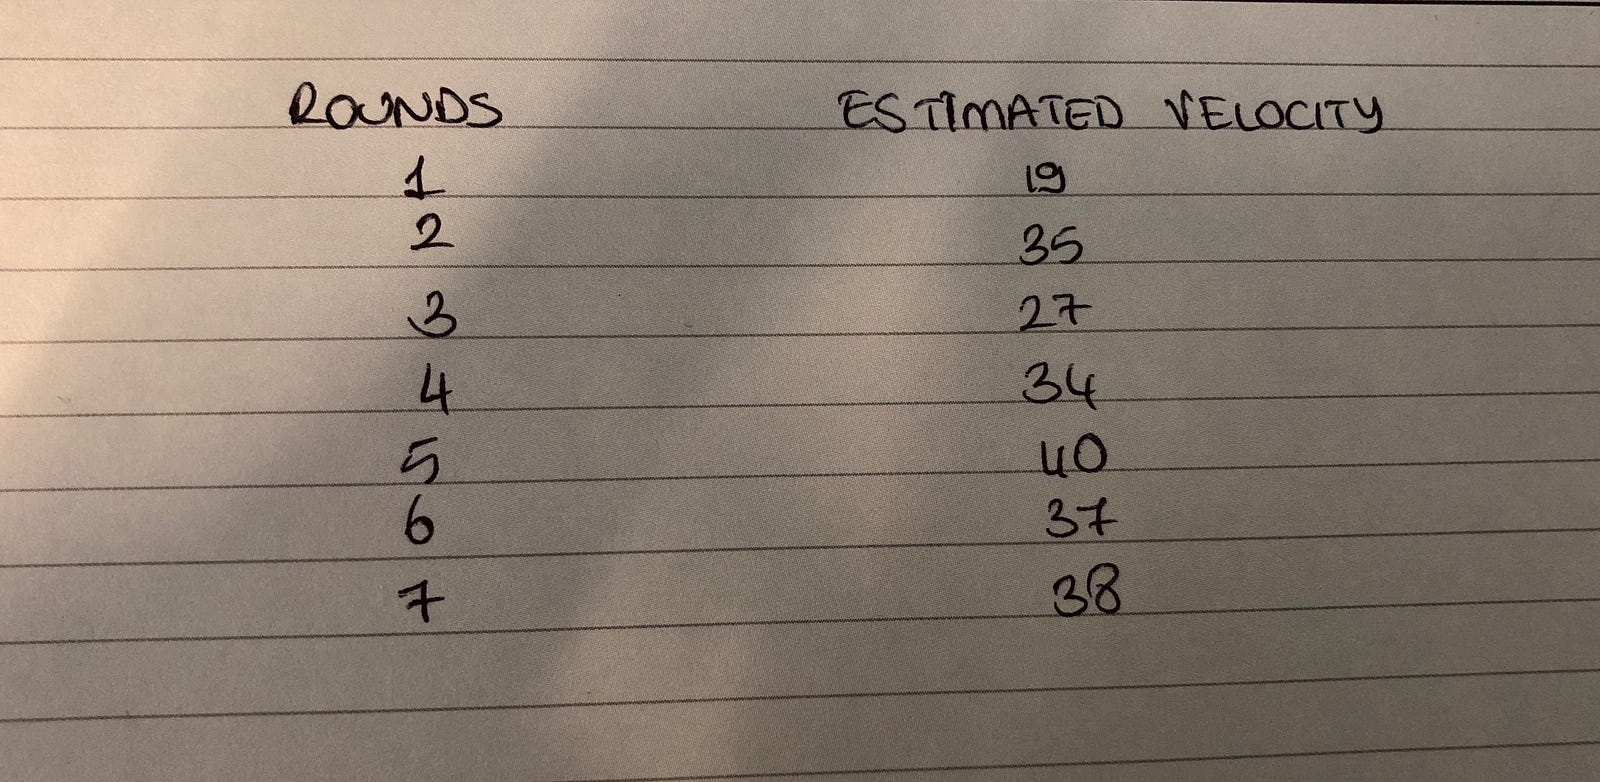 ROUNDS ESTIMATED VELOCITY
1 19
2 35
3 27
4 34
5 40
6 37
7 38